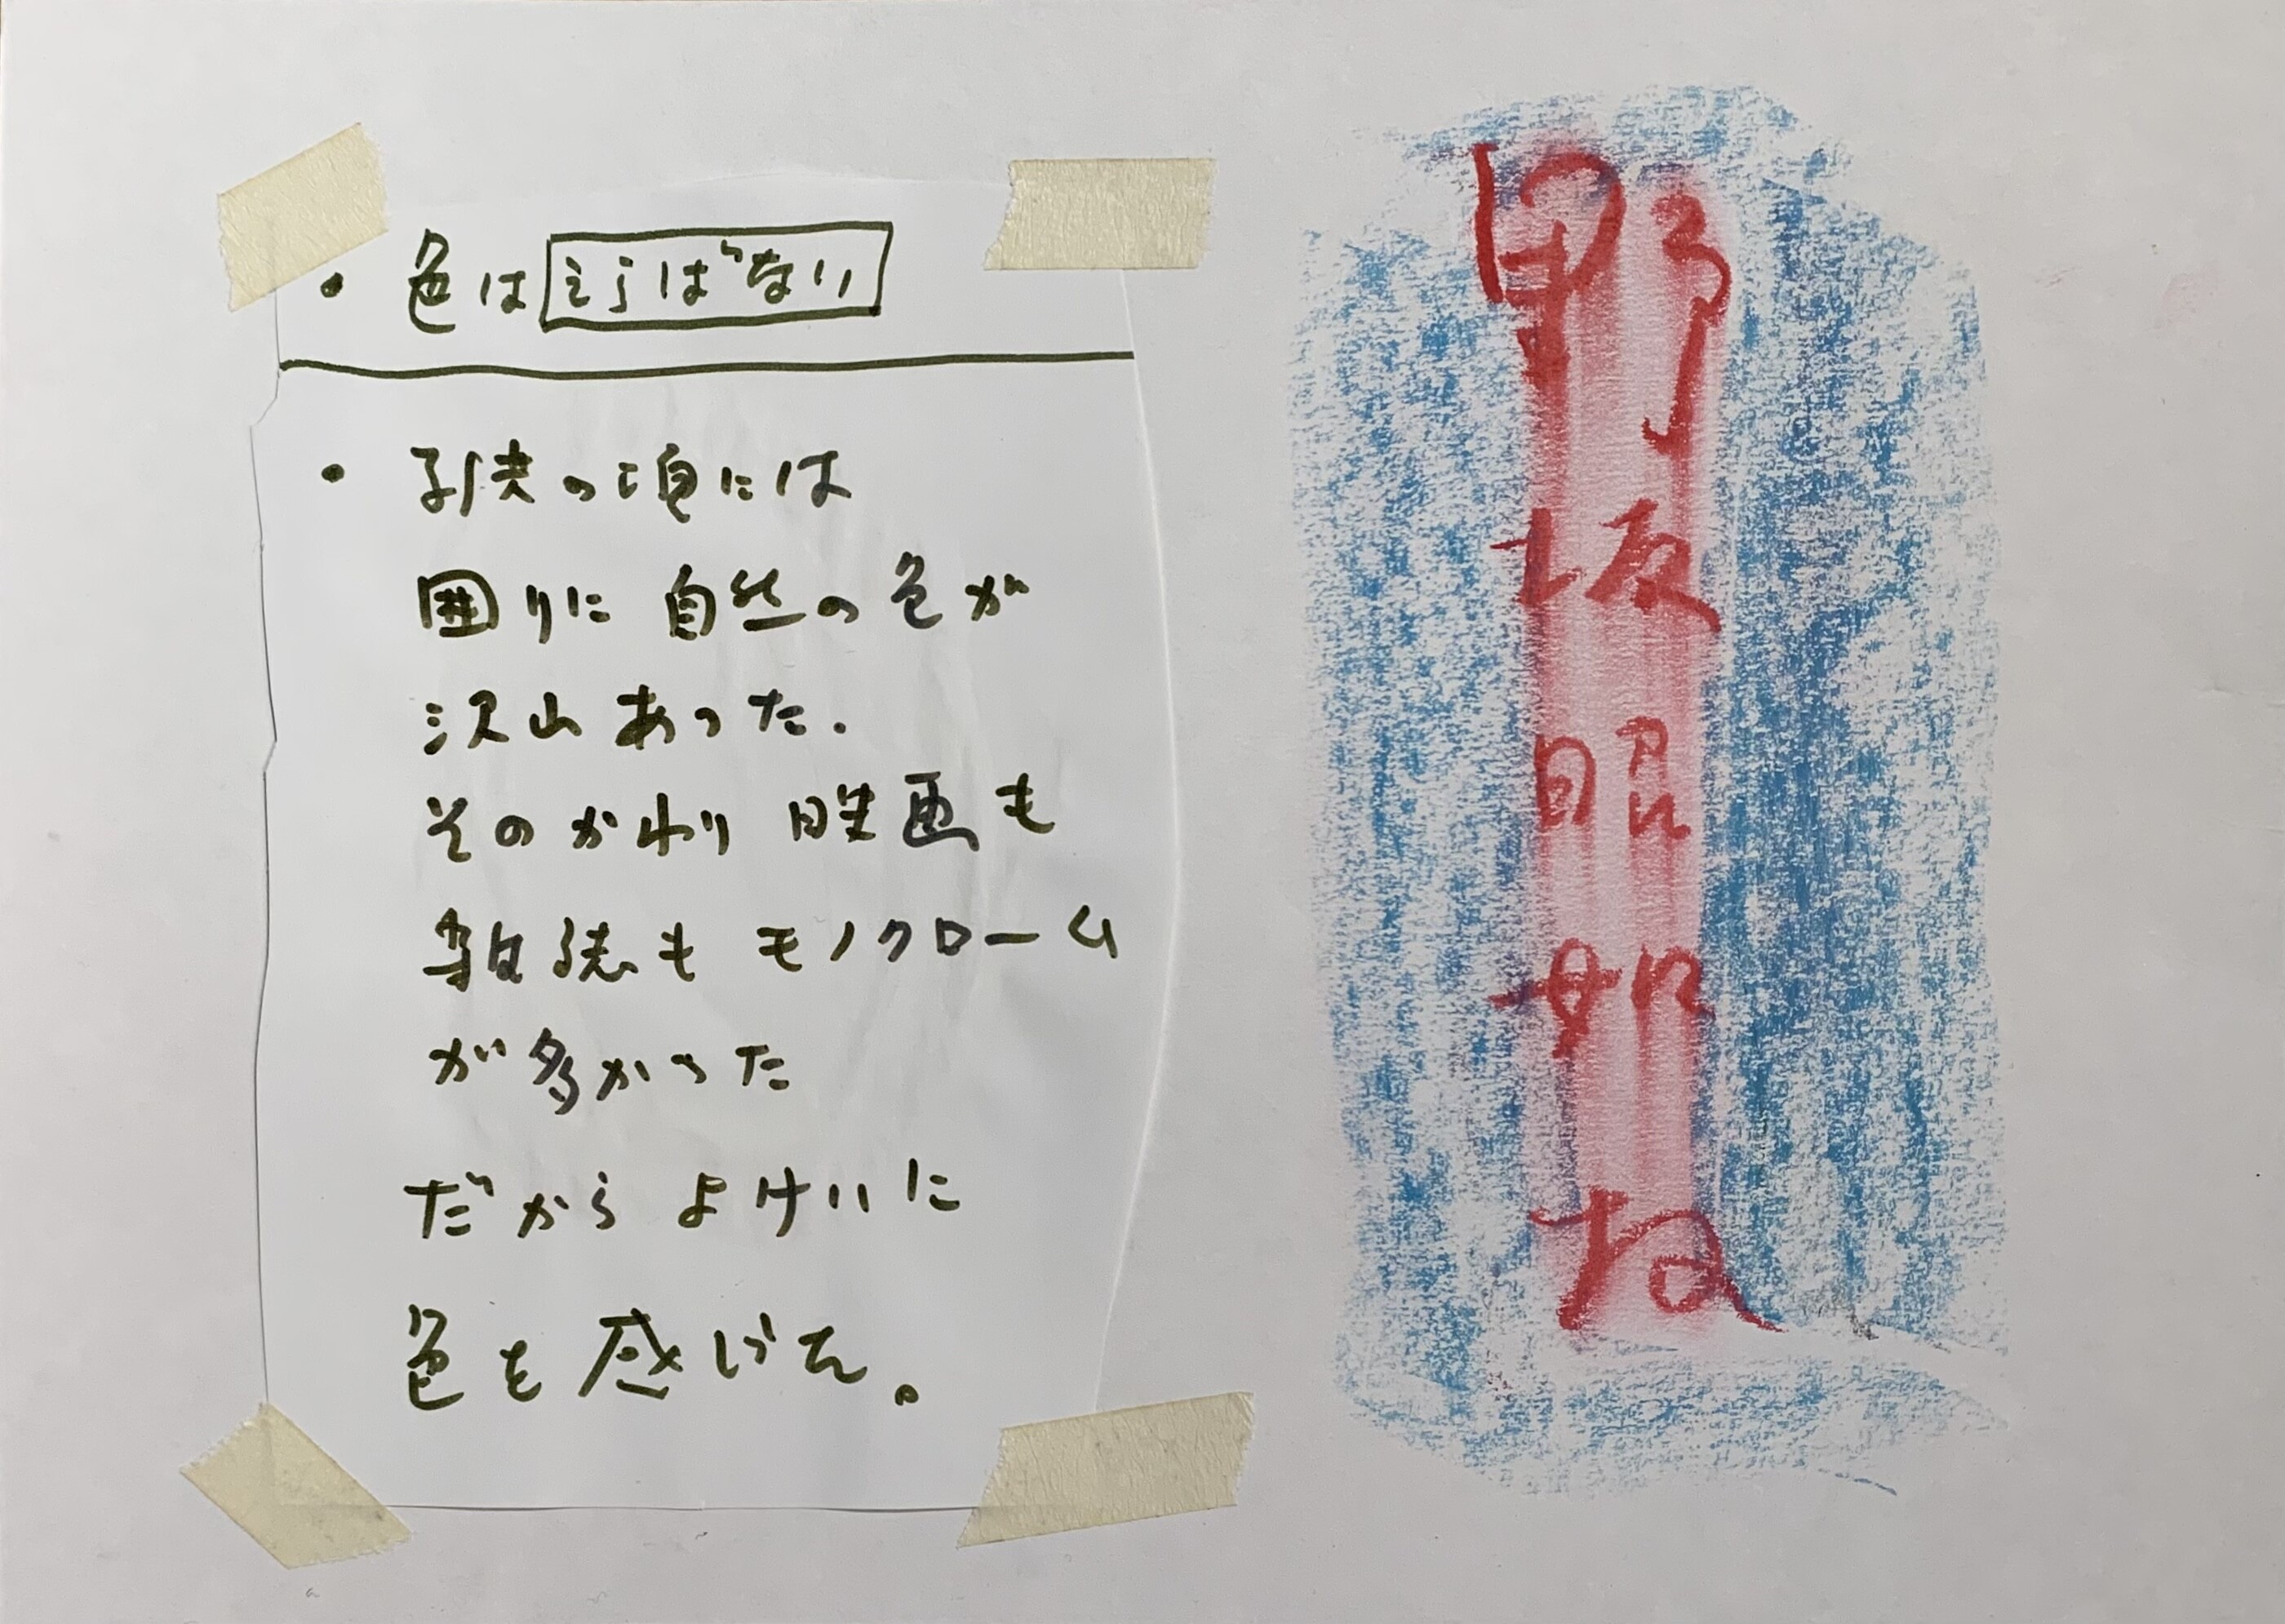 ・色はえらばない
・子供の頃には
囲りに 自然の色が
沢山あった.
そのかわり 映画も
雑誌も モノクローム
が多かった
だから よけいに
色を感じた。
野坂昭如ね